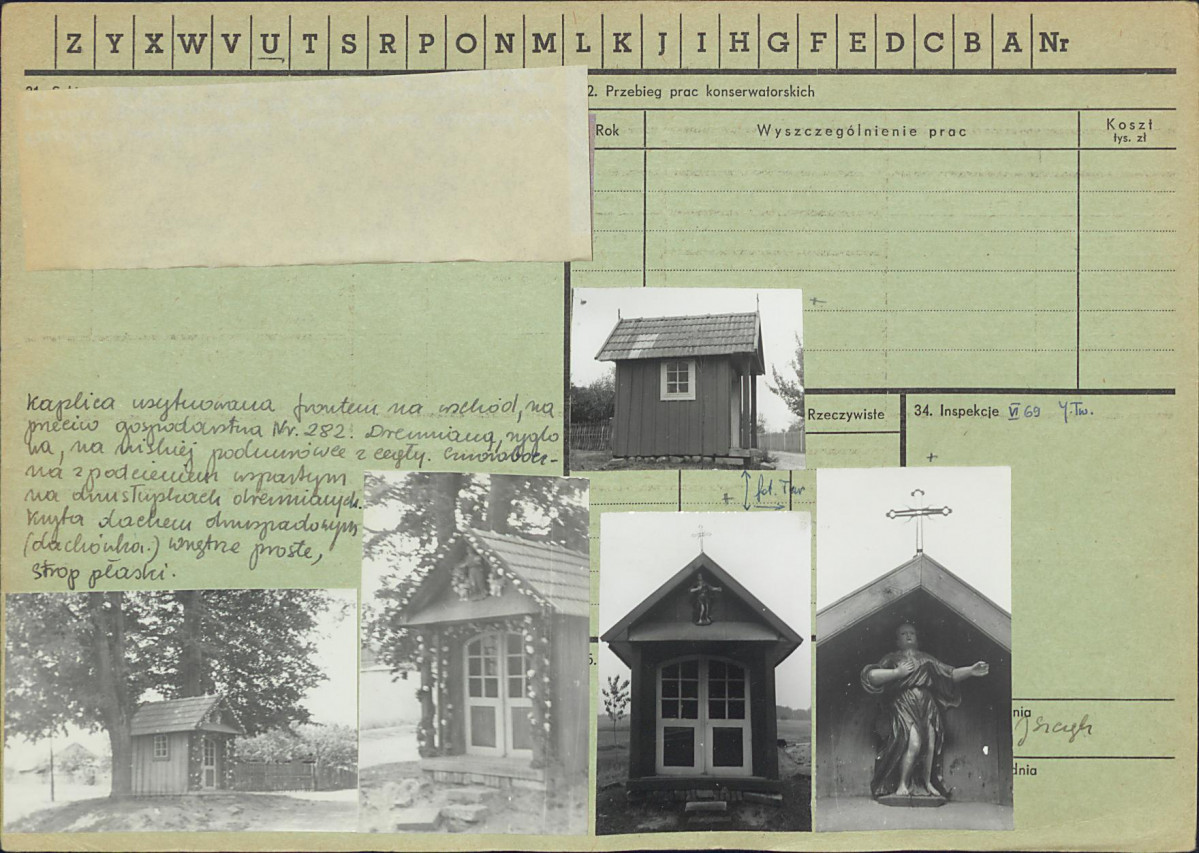 Z Y X W V U T S R P O N M L K J I H G F E D C B A Nr
2. Przebieg prac konserwatorskich
Rok
Wyszczególnienie prac
Koszt
tys. zł
Kaplica usytuowana frontem na wschód, na
przeciw gospodarstwa Nr. 282. Drewniana, ryglo
wa, na niskiej podmurówce z cegły. Czworobocz-
na z podcieniem wspartym
na dwu słupkach drewnianych.
Kryta dachem dwuspadowym
(dachówka.) wnętrze proste,
strop płaski.
Rzeczywiste
34. Inspekcje VI 69 J.Tw.
fot. Twr
5.
nia
dnia